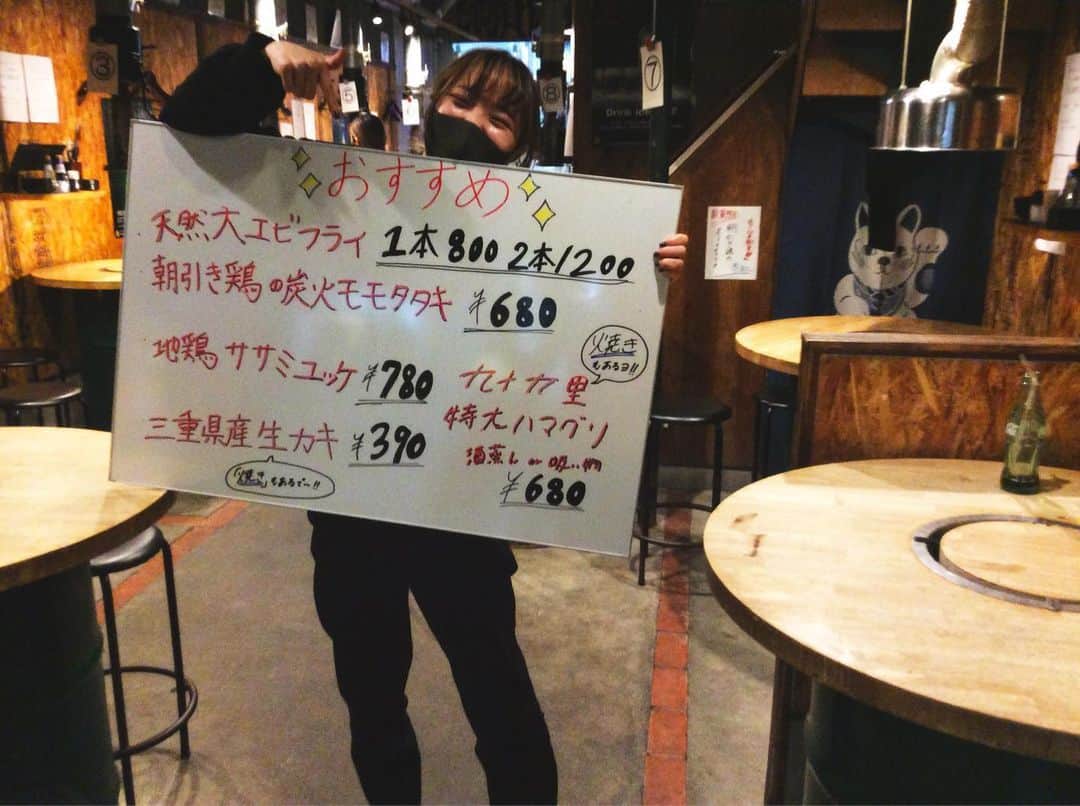 おすすめ
天然大エビフライ 1本800 2本1200
朝引き鶏の炭火モモタタキ ¥680
地鶏ササミユッケ ¥780
三重県産生カキ ¥390
「焼き」もあるで〜!!
焼き
もあるヨ!!
九十九里
特大ハマグリ
酒蒸し or 吸い物
¥680
③
⑤
⑧
⑦